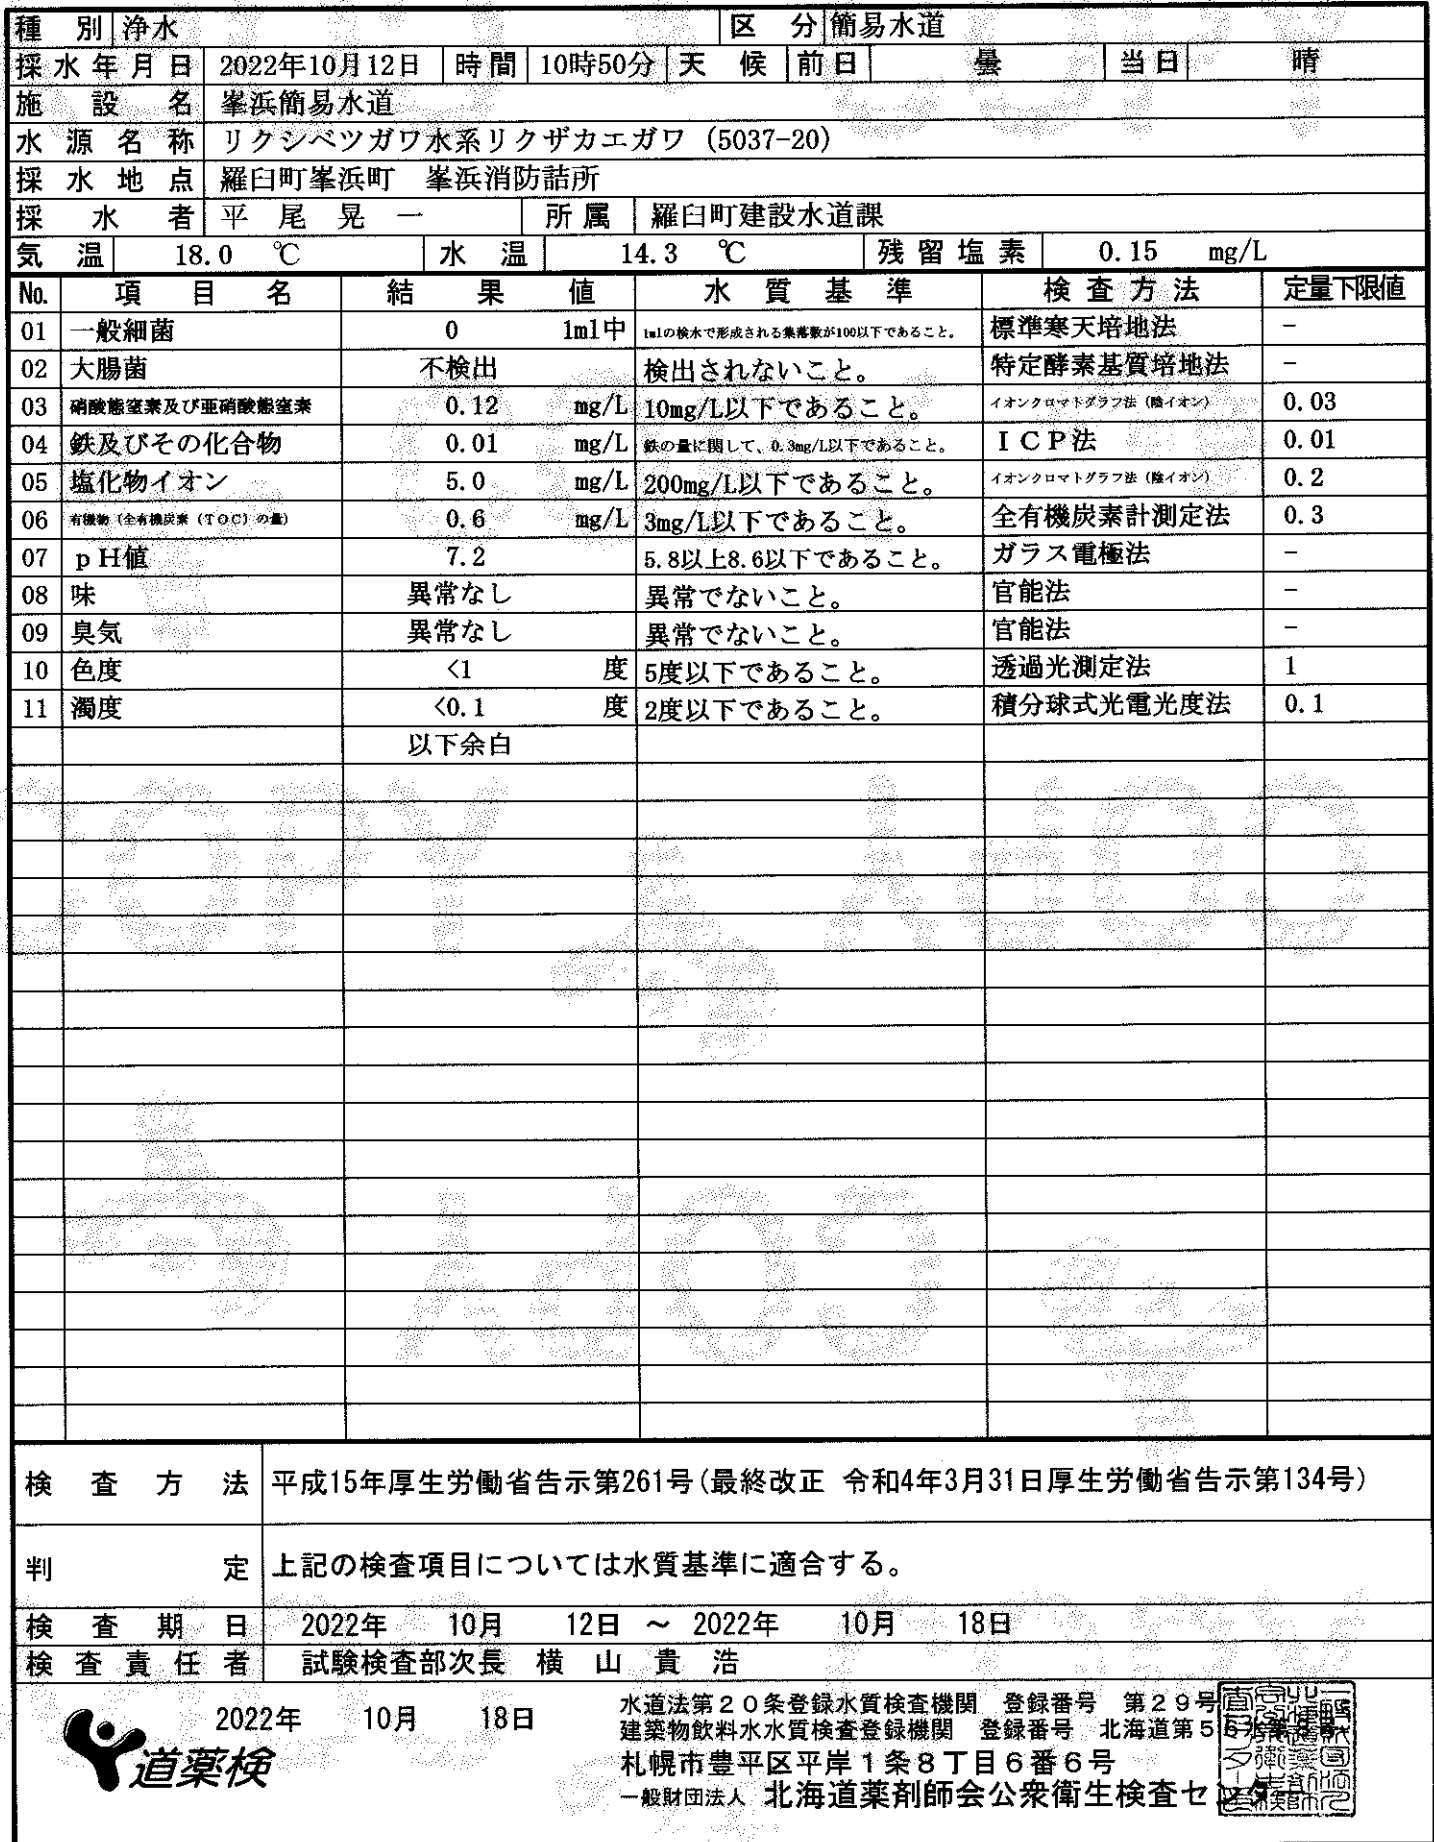 種 別 浄水 区 分 簡易水道
採水年月日 2022年10月12日 時間 10時50分 天 候 前日 曇 当日 晴
施 設 名 峯浜簡易水道
水 源 名 称 リクシベツガワ水系リクザカエガワ (5037-20)
採 水 地 点 羅臼町峯浜町 峯浜消防詰所
採 水 者 平 尾 晃 一 所属 羅臼町建設水道課
気 温 18.0 ℃ 水 温 14.3 ℃ 残留塩素 0.15 mg/L
No. 項 目 名 結 果 値 水 質 基 準 検査方法 定量下限値
01 一般細菌 0 1ml中 1mlの検水で形成される集落数が100以下であること。 標準寒天培地法 −
02 大腸菌 不検出 検出されないこと。 特定酵素基質培地法 −
03 硝酸態窒素及び亜硝酸態窒素 0.12 mg/L 10mg/L以下であること。 イオンクロマトグラフ法（陰イオン） 0.03
04 鉄及びその化合物 0.01 mg/L 鉄の量に関して、0.3mg/L以下であること。 ＩＣＰ法 0.01
05 塩化物イオン 5.0 mg/L 200mg/L以下であること。 イオンクロマトグラフ法（陰イオン） 0.2
06 有機物（全有機炭素（TOC）の量） 0.6 mg/L 3mg/L以下であること。 全有機炭素計測定法 0.3
07 ｐＨ値 7.2 5.8以上8.6以下であること。 ガラス電極法 −
08 味 異常なし 異常でないこと。 官能法 −
09 臭気 異常なし 異常でないこと。 官能法 −
10 色度 <1 度 5度以下であること。 透過光測定法 1
11 濁度 <0.1 度 2度以下であること。 積分球式光電光度法 0.1
以下余白
検 査 方 法 平成15年厚生労働省告示第261号(最終改正 令和4年3月31日厚生労働省告示第134号)
判 定 上記の検査項目については水質基準に適合する。
検 査 期 日 2022年 10月 12日 ～ 2022年 10月 18日
検 査 責 任 者 試験検査部次長 横 山 貴 浩
2022年 10月 18日
道薬検
水道法第２０条登録水質検査機関 登録番号 第２９号
建築物飲料水水質検査登録機関 登録番号 北海道第５６水第８号
札幌市豊平区平岸１条８丁目６番６号
一般財団法人 北海道薬剤師会公衆衛生検査センター